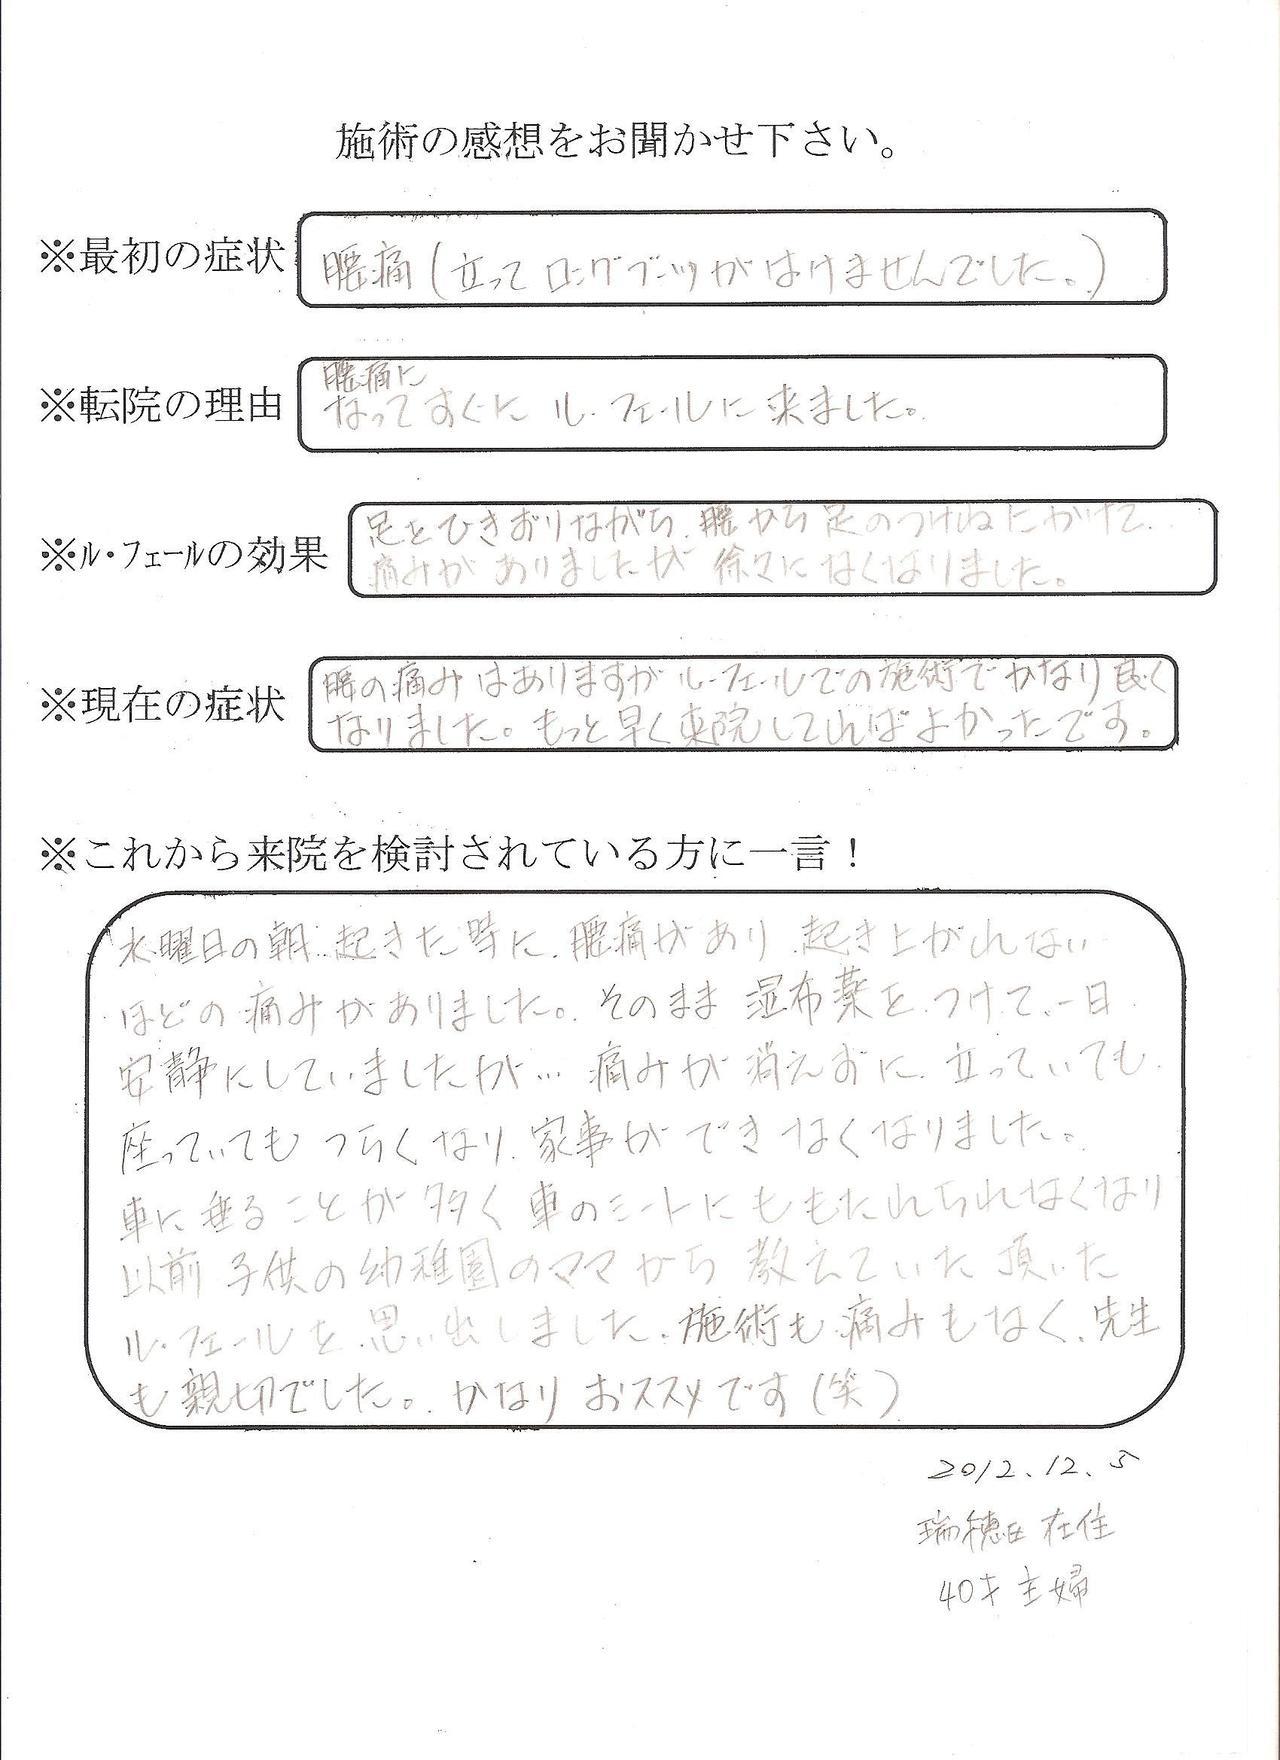 施術の感想をお聞かせ下さい。
※最初の症状
腰痛(立ってロングブーツがはけませんでした。)
※転院の理由
腰痛に
なってすぐに ル・フェールに来ました。
※ル・フェールの効果
足をひきずりながら、腰から足のつけねにかけて、
痛みがありましたが 徐々になくなりました。
※現在の症状
腰の痛みはありますがル・フェールでの施術でかなり良く
なりました。もっと早く来院してればよかったです。
※これから来院を検討されている方に一言!
水曜日の朝、起きた時に、腰痛があり、起き上がれない
ほどの痛みがありました。そのまま湿布薬を、つけて、一日
安静にしていましたが… 痛みが消えずに、立っていても、
座っていてもつらくなり、家事ができなくなりました。
車に乗ることが多く車のシートにももたれられなくなり
以前子供の幼稚園のママから教えていた頂いた
ル・フェールを思い出しました。施術も痛みもなく、先生
も親切でした。かなりおススメです(笑)
2012.12.5
瑞穂区在住
40才主婦